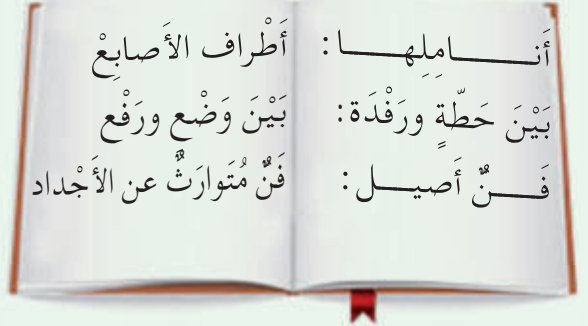 أَنـــــامِلِهـــــا: أَطْراف الأَصابِعْ
بَيْنَ حَطّةٍ ورَفْدَة: بَيْنَ وَضْعٍ ورَفْع
فَـــنٌّ أَصيـــل: فَنٌّ مُتَوارَثٌ عن الأَجْداد